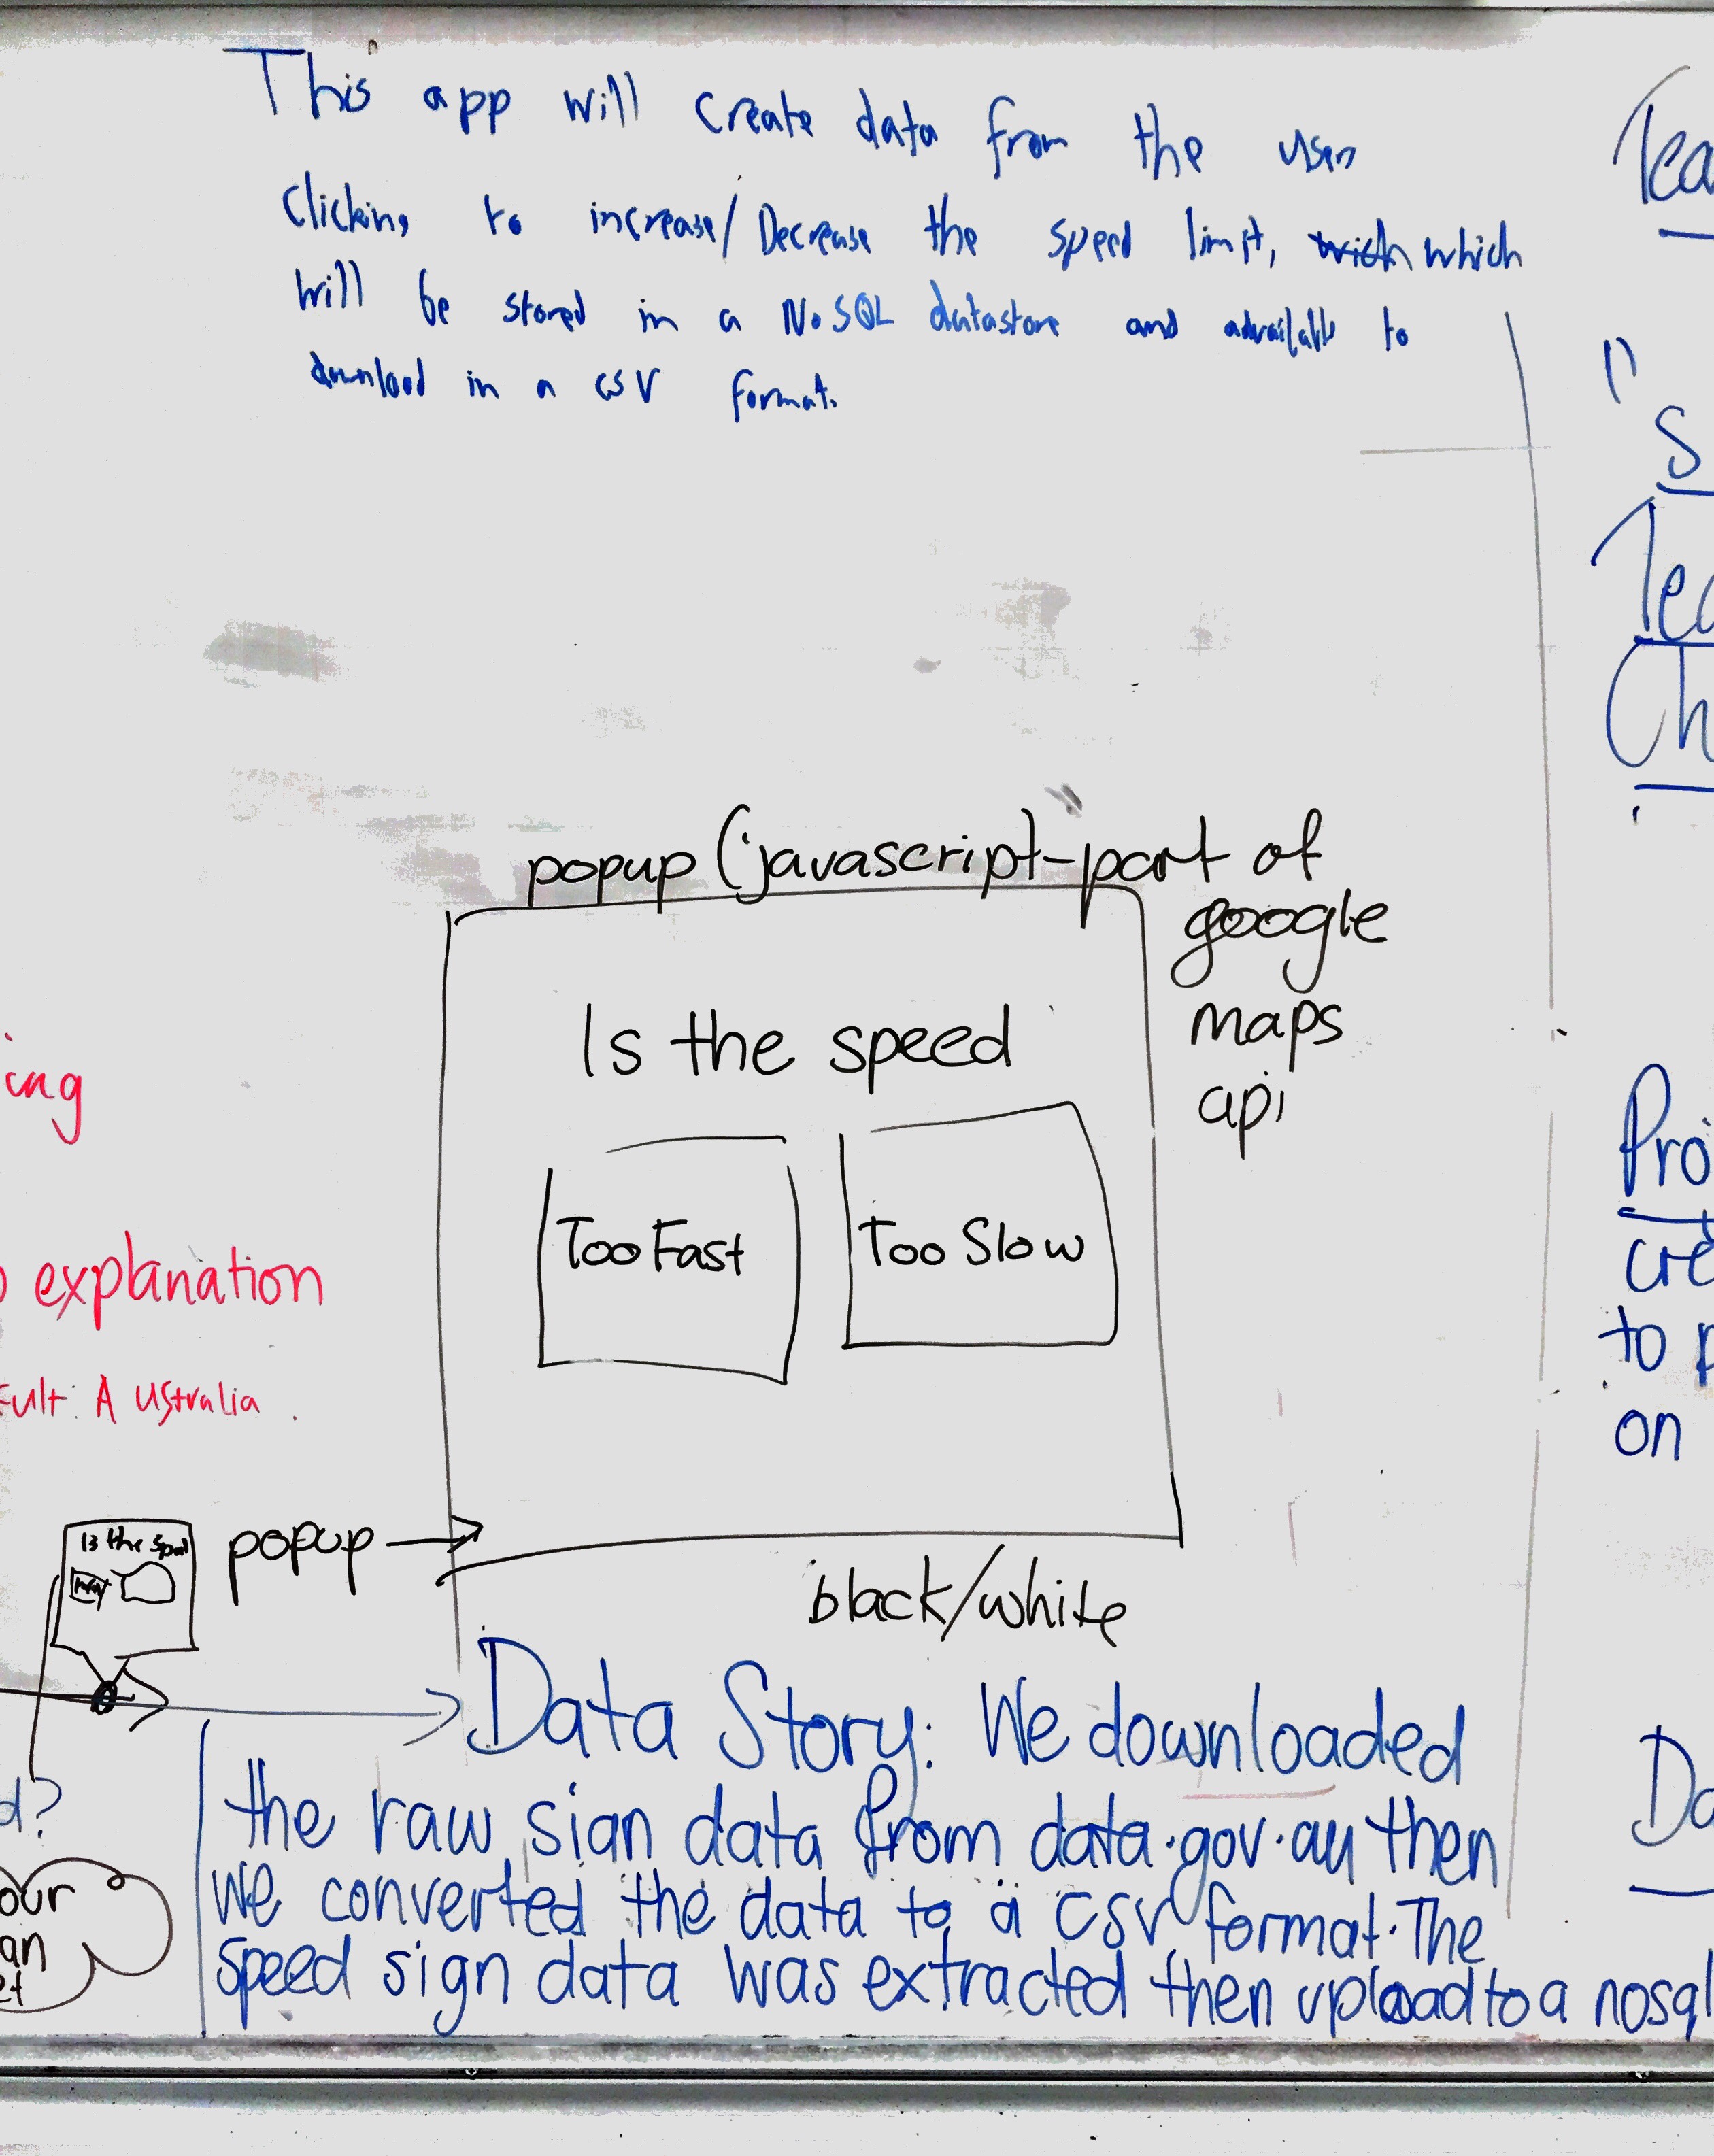 This app will create data from the user
clicking to increase/Decrease the speed limit, which
will be stored in a NoSQL datastore and advailable to
download in a CSV format.
Tea
S
Tea
Ch
popup (javascript)-part of
google
maps
api
Is the speed
Too Fast
Too Slow
ing
explanation
ult: Australia
Is the speed
popup
black/white
Pro
cre
to p
on
Data Story: We downloaded
the raw sign data from data.gov.au then
we converted the data to a CSV format. The
speed sign data was extracted then upload to a nosql
d?
our
an
et
Da